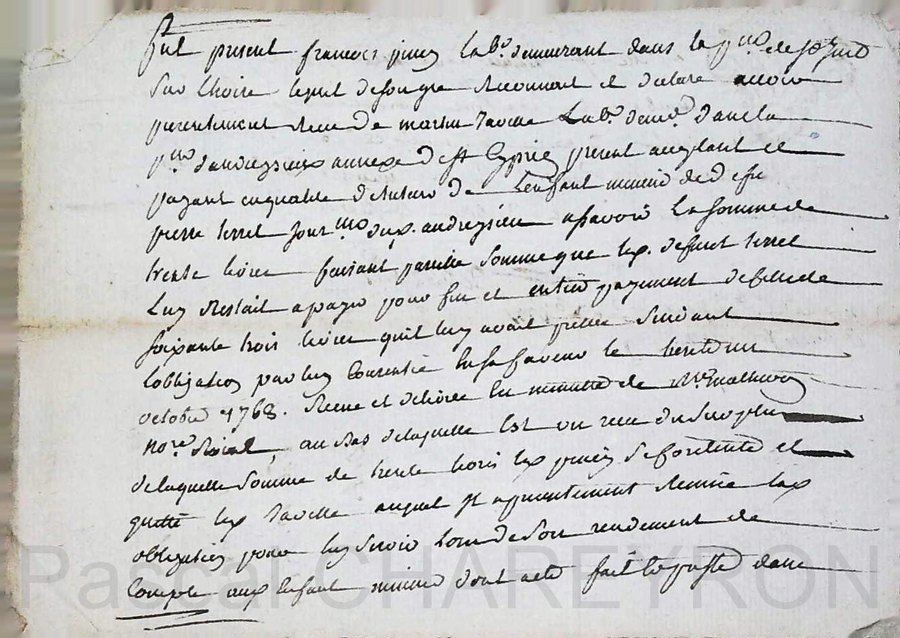 fut present françois pinez lab.r demeurant dans la p.sse de st just
Sur Lhoire lequel de son gre Reconnoit et declare avoir
presentement Receu de martin Lab.r dem.t dans la
p.sse dandrezieux annexe de st Cyprien present acceptant et
payant en qualité de tuteur de Lenfant mineur de defu
pierre terret Jour.lier dud. andrezieu a sçavoir La somme de
trente livres faisant pareille somme que led. defunt terret
Luy Restait a payer pour fin et entier payement de celle de
soixante trois livres quil luy avait pretée Suivant
lobligation par luy Consentie En sa faveur le
octobre 1768. Receue et delivrée En minutte de M.e
no.re Roial, au bas de laquelle Est un receu du Surplus
de laquelle somme de trente livres led. pinez se contente et
quitte led. auquel Il a presentement Remise lad.
obligation pour luy Servir Lors de Son rendement de
Compte aud. Enfant mineur dont acte fait et passé dans
Pascal CHAREYRON